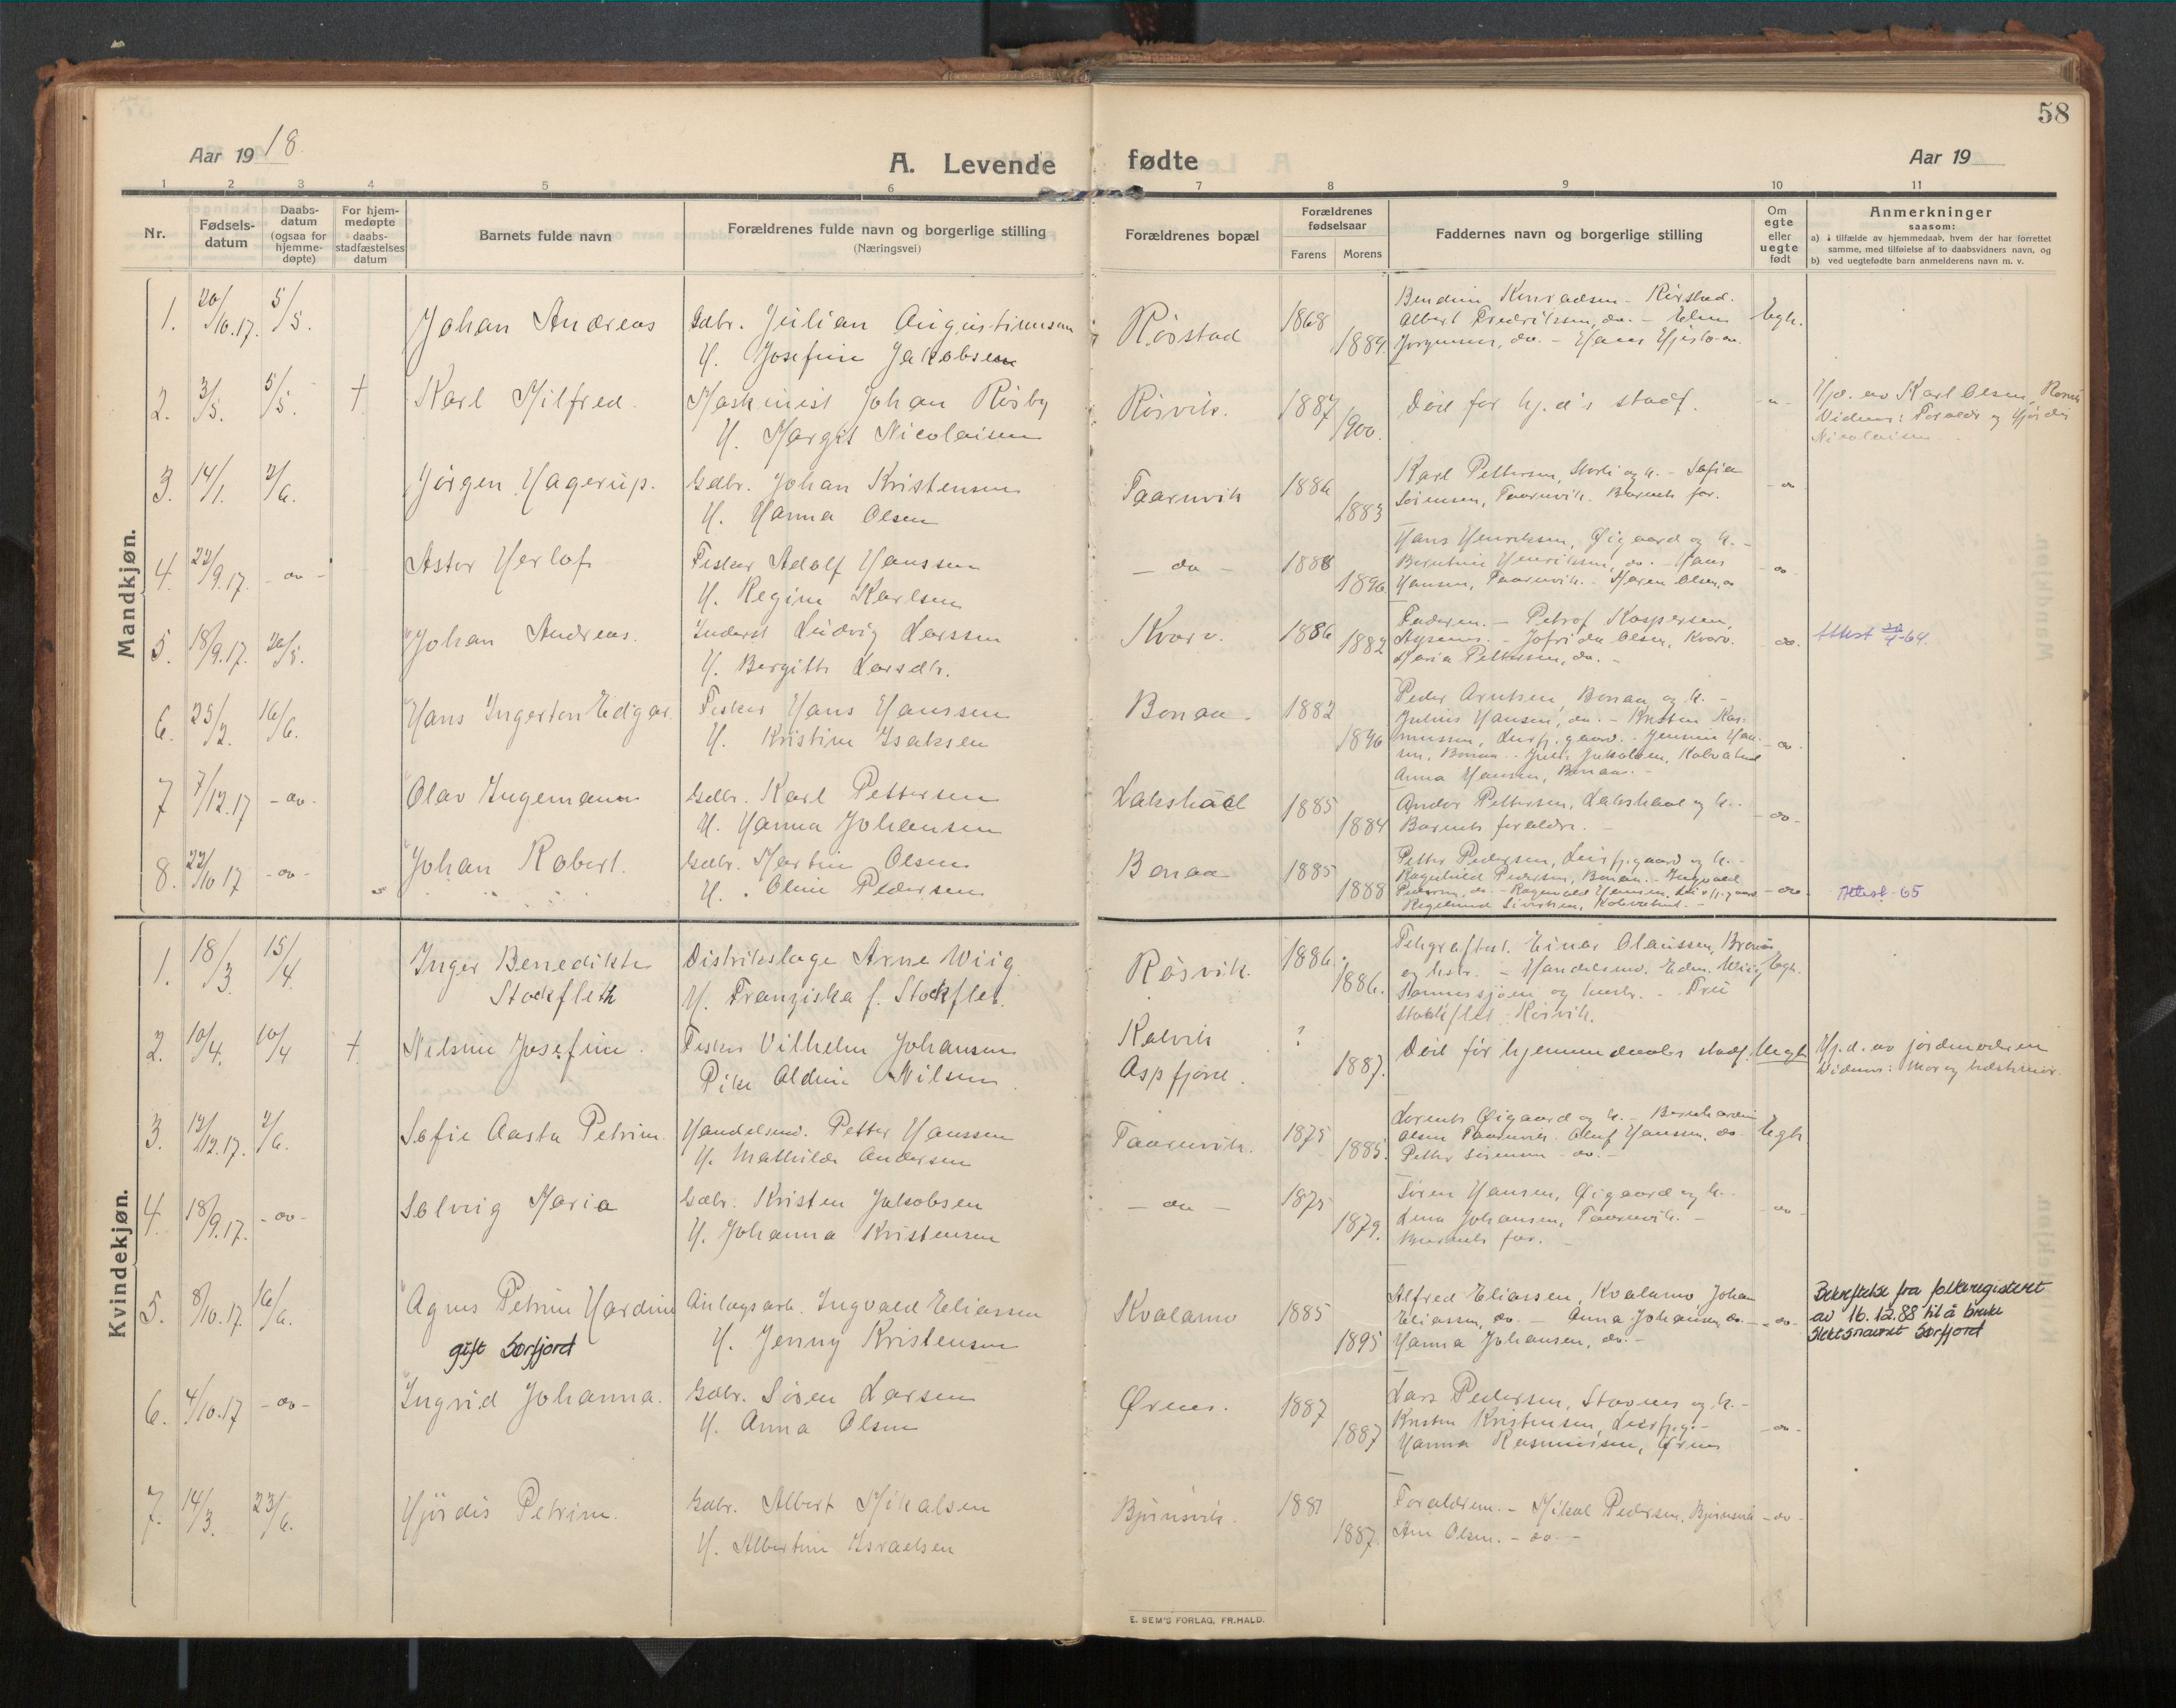 58
Aar 1918
A. Levende fødte
Aar 19
1 2 3 4 5 6 7 8 9 10 11
Nr.
Fødsels-
datum
Daabs-
datum
(ogsaa for
hjemme-
døpte)
For hjem-
medøpte
daabs-
stadfæstelses
datum
Barnets fulde navn
Forældrenes fulde navn og borgerlige stilling
(Næringsvei)
Forældrenes bopæl
Forældrenes
fødselsaar
Farens Morens
Faddernes navn og borgerlige stilling
Om
egte
eller
uegte
født
Anmerkninger
saasom:
a) i tilfælde av hjemmedaab, hvem der har forrettet
samme, med tilføielse av to daabsvidners navn, og
b) ved uegtefødte barn anmelderens navn m. v.
Mandkjøn.
1. 20/10.17. 5/5. Johan Andreas Gdbr. Julian Augustinussen Røsstad 1868 Albert Fredriksen, do. Egt.
H. Josefine Jakobsen 1884. Jørgensen, do.
2. 3/5. 5/5. † Karl Hilfred. Maskinist Johan Røsby Røsvik. 1887 Død før hj.d's stadf. - " - Hjd. av Karl Olsen, Røsvik
H. Margit Nicolaisen 1900. Vidner: Foreldr og Hjørdis
Nicolaisen
3. 14/1. 2/6. Jørgen Hagerup. Gdbr. Johan Kristensen Taarnvik 1886 Karl Pettersen, Storli og h. - Sofie - do
H. Hanna Olsen 1883 Sørensen, Taarnvik. Barnets for.
4. 22/9.17. - do - Astor Herlof Fisker Adolf Hanssen - do - 1888 Hans Henriksen, Øigaard og h. -
H. Regine Karlsen 1896 Berntine Henriksen, do. - Hans
Hansen, Taarnvik. - Maren Olsen, do - do
5. 18/9.17. 20/5. Johan Andreas. Inderst Ludvig Larssen Kvarv. 1886 Faderen. - Petrof Kaspersen, Attest 22/4-64.
H. Bergitte Larsdtr. 1882 - Jofrida Olsen, Kvarv. do.
Maria Pettersen, do. -
6. 25/2. 16/6. Hans Ingerton Edgar Fisker Hans Hanssen Bonaa. 1882 Peder Arntsen, Bonaa og h. -
H. Kristine Isaksen 1896 Julius Hansen, do. - Kristen Ras-
mussen, Leirfj.gaard. - Jensine Han-
sen, Bonaa. Jakobsen, Kalvatind - do -
Anna Hansen, Bonaa. -
7 7/12.17 - do - Olav Ingemann Gdbr. Karl Pettersen Lakshaal 1885 Andor Pettersen, Lakshaal og h. -
H. Hanna Johansen 1884 Barnets foreldre. - - do -
8. 22/10 17 - do - Johan Robert. Gdbr. Martin Olsen Bonaa 1885 Petter Pedersen, Leirfj.gaard og h. -
H. Oline Pedersen 1888 Ragnhild Pedersen, Bonaa. - Ingvald
Pedersen, do. - Ragnvald Hansen, Leirfj.gaard - do - Attest - 65
Sivertsen, Kalvatind. -
Kvindekjøn.
1. 18/3 15/4. Inger Benedikte Distriktslæge Arne Wiig Røsvik. 1886. Telegrafbest. Einar Claussen,
Stockfleth H. Franziska f. Stockflet. 1886. og hstr. - Handelsmd. Edm. Wiig Egt.
og hustr. - Fru
Stockflet Røsvik.
2. 10/4. 10/4 † Nilsine Josefine. Fisker Vilhelm Johansen Kalvik ? Død før hjemmedaabs stadf. Uegt Hj.d. av jordmoderen
Pike Aldine Nilsen. Aspfjord. 1887. Vidner: Mor og bedstemor.
3. 12/12.17. 2/6. Sofie Aasta Petrine. Handelsmd. Petter Hanssen Taarnvik. 1875 Lorents Øigaard og h. - Bernhardin
H. Mathilde Andersen 1885. Olsen Taarnvik. Oluf Hanssen, do Egt.
Petter Sørensen do. -
4. 18/9.17. - do - Solvig Maria Gdbr. Kristen Jakobsen - do - 1875 Søren Hansen, Øigaard og h. -
H. Johanna Kristensen 1879. Lena Johansen, Taarnvik. - - do -
Barnets for. -
5. 8/10.17. 16/6. Agnes Petrine Hardine Anlægsarb. Ingvald Eliassen Kvalamo 1885 Alfred Eliassen, Kvalamo Johan Bekreftelse fra folkeregisteret
gift Sørfjord H. Jenny Kristensen 1895 Eliassen, do. - Anna Johansen do. - do - av 16.12.88 til å bruke
Hanna Johansen, do. - slektsnavnet Sørfjord
6. 4/10.17 - do - Ingrid Johanna. Gdbr. Søren Larsen Ørnes. 1887 Lars Pedersen, Stavnes og h. -
H. Anna Olsen 1887 Kristen Kristensen, Leirfj.g. - - do -
Hanna Rasmussen, Ørnes
7. 14/3. 23/6. Hjördis Petrine. Gdbr. Albert Mikalsen Bjørnsvik. 1881 Forældrene. - Mikal Pedersen, Bjørnsvik - do -
H. Albertine Israelsen 1887. Olsen. - do -
E. SEM'S FORLAG, FR.HALD.